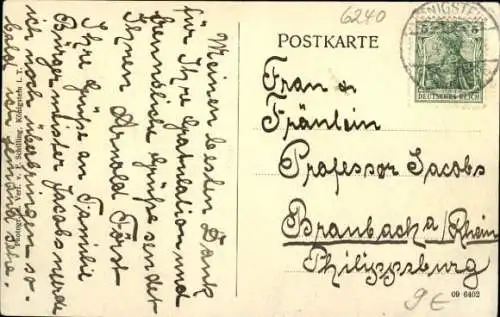 6240
KÖNIGSTEIN
POSTKARTE
5 5
DEUTSCHES REICH
Frau u
Fräulein
Professor Jacobs
Braubach a/Rhein
Philippsburg
09 6402
9 €
Meinen besten Dank
für Ihre Gratulation und
freundliche Grüße sendet
Ihnen Arnold
Ihre Grüße an Familie
Bürgermeister Jacobs werde
ich noch überbringen so-
bald ich jemand sehe.
Photogr. u. Verl. v. F. Schilling, Königstein i. T.